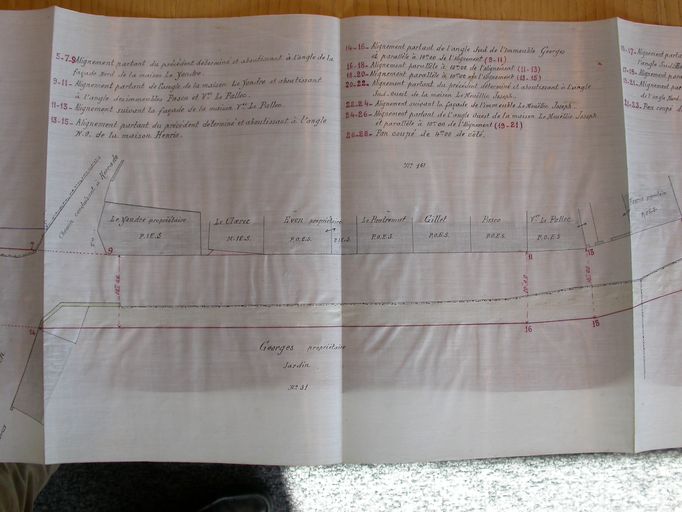 5-7-9 Alignement partant du précédent déterminé et aboutissant à l'angle de la
façade Nord de la maison Le Yendre.
9-11- Alignement partant de l'angle de la maison Le Yendre et aboutissant
à l'angle des immeubles Pasco et Vve Le Pallec.
11-13- Alignement suivant la façade de la maison Vve Le Pallec.
13-15- Alignement partant du précédent déterminé et aboutissant à l'angle
N.O. de la maison Henrio.
14-16- Alignement partant de l'angle Sud de l'immeuble Georges
et parallèle à 10m00 de l'alignement (9-11)
16-18- Alignement parallèle à 10m00 de l'alignement (11-13)
18-20- Alignement parallèle à 10m00 de l'alignement (13-15)
20-22- Alignement partant du précédent déterminé et aboutissant à l'angle
Sud ouest de la maison Le Meuëllic Joseph.
22-24- Alignement suivant la façade de l'immeuble Le Meuëllic Joseph
24-26- Alignement partant de l'angle Ouest de la maison Le Meuëllic Joseph
et parallèle à 10m00 de l'alignement (19-21)
26-28- Pan coupé de 4m00 de côté.
15-17- Alignement partant
17-19- Alignement
19-21- Alignement
de l'angle Nord
21-23 Pan coupé
No 141
Chemin conduisant à
Le Yendre propriétaire
P.1.E.S.
Le Clarec
M.1E.S
Even propriétaire
P.O.E.S.
P.1E.S
Le Pontremat
P.O.E.S.
Gillet
P.O.E.S.
Pasco
P.O.E.S.
Vve Le Pallec
P.O.E.S
propriétaire
P.O.E.S.
7
9
11
13
10m00
10m00
10m00
14
16
18
Georges propriétaire
Jardin
No 31